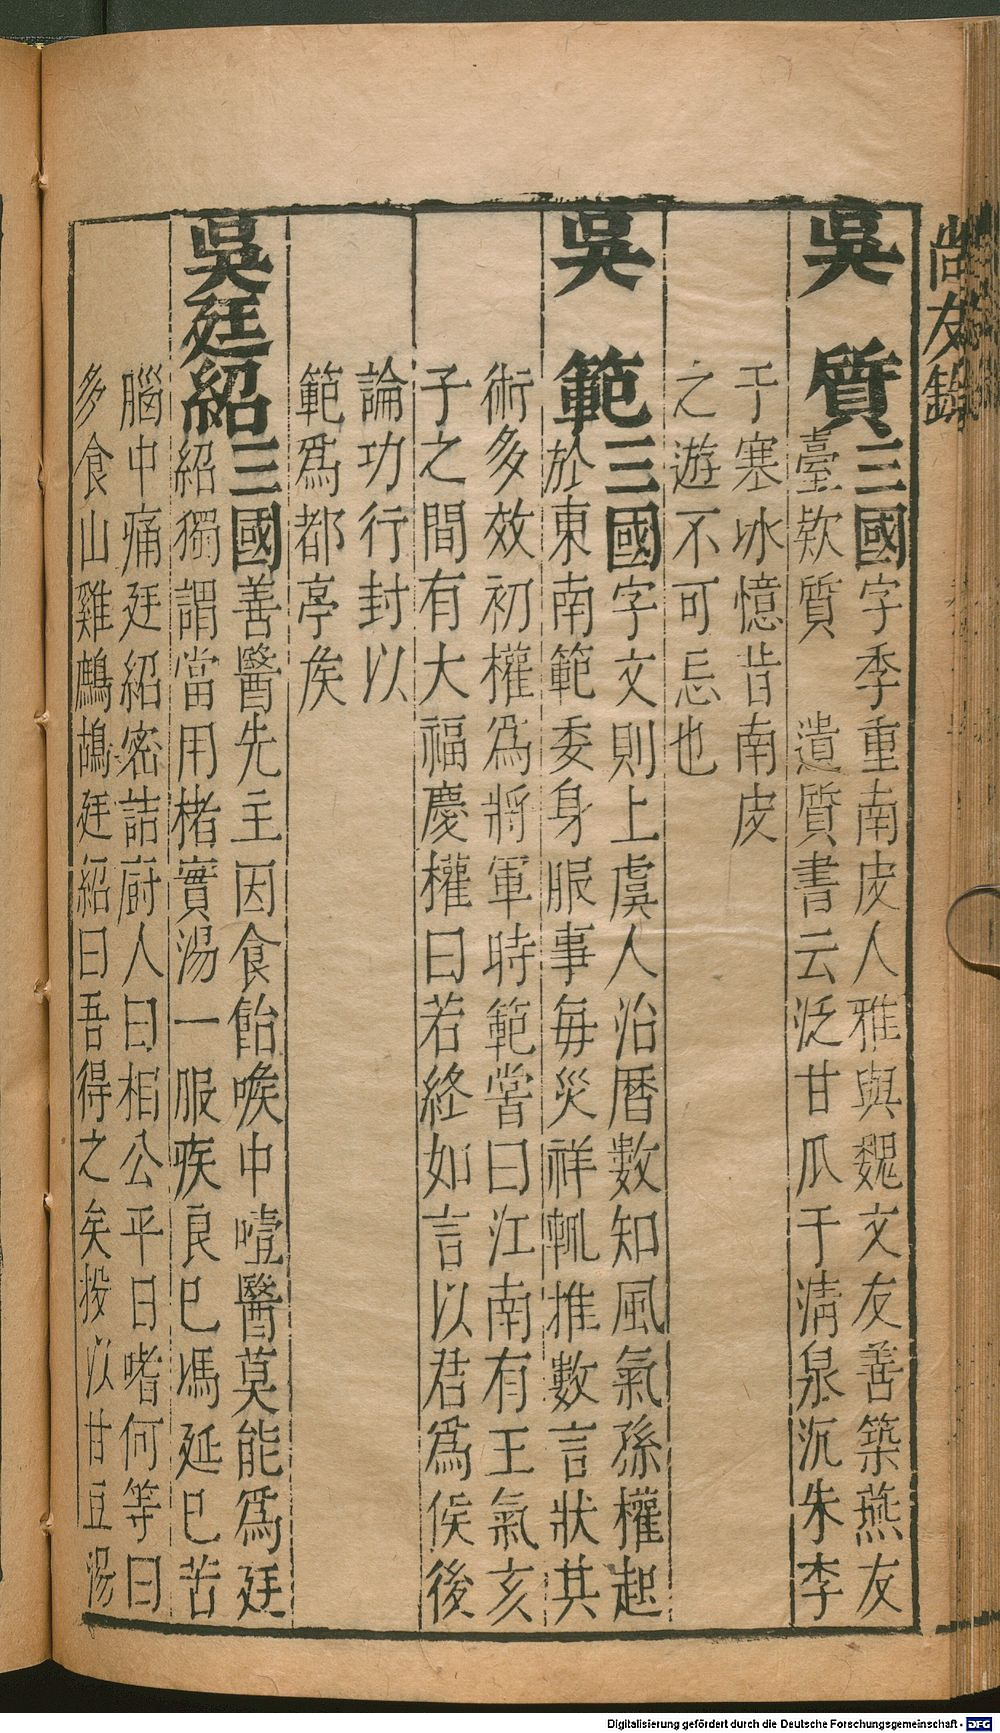 尚友錄
吳質三國字季重南皮人雅與魏文友善築燕友
臺欵質　遺質書云泛甘瓜于清泉沉朱李
于寒冰憶昔南皮
之遊不可忘也
吳範三國字文則上虞人治曆數知風氣孫權起
於東南範委身服事每災祥輒推數言狀其
術多效初權爲將軍時範嘗曰江南有王氣亥
子之間有大福慶權曰若終如言以君爲侯後
論功行封以
範爲都亭侯
吳廷紹三國善醫先主因食飴喉中噎醫莫能爲廷
紹獨謂當用楮實湯一服疾良巳馮延巳苦
腦中痛廷紹密詰廚人曰相公平日嗜何等曰
多食山雞鷓鴣廷紹曰吾得之矣投以甘豆湯
Digitalisierung gefördert durch die Deutsche Forschungsgemeinschaft - DFG